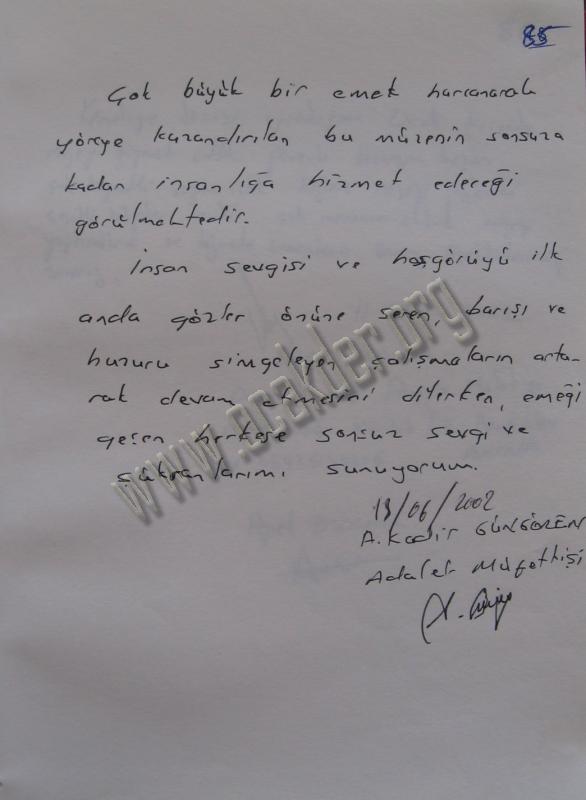 85
Çok büyük bir emek harcanarak
yöreye kazandırılan bu müzenin sonsuza
kadar insanlığa hizmet edeceği
görülmektedir.
İnsan sevgisi ve hoşgörüyü ilk
anda gözler önüne seren, barışı ve
huzuru simgeleyen çalışmaların arta-
rak devam etmesini dilerken, emeği
geçen herkese sonsuz sevgi ve
şükranlarımı sunuyorum.
13/06/2002
A. Kadir GÜNGÖREN
Adalet Müfettişi
www.ocakder.org